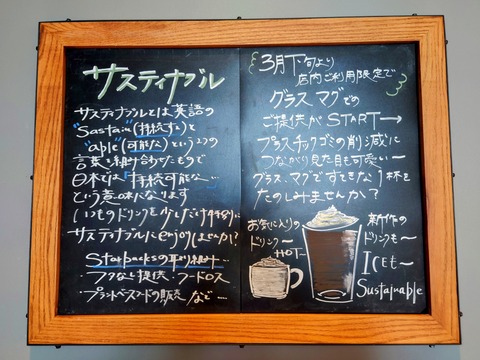 サスティナブル
サスティナブルとは英語の
"Sastain(持続する)と
"able(可能な)という2つの
言葉を組み合わせたもので
日本では「持続可能な…」
という意味になります
いつものドリンクを少しだけ特別に
サスティナブルにenjoyしませんか?
Starbucksの取り組み…
・フタなし提供 ・フードロス
・プラントベースフードの販売 など…
3月下旬より
店内ご利用限定で
グラス マグでの
ご提供がSTART→
プラスチックゴミの削減に
つながり見た目も可愛い〜
グラス、マグですてきな1杯を
たのしみませんか?
お気に入りの
ドリンク〜
HOT〜
新作の
ドリンクも〜
ICEも〜
Sustainable